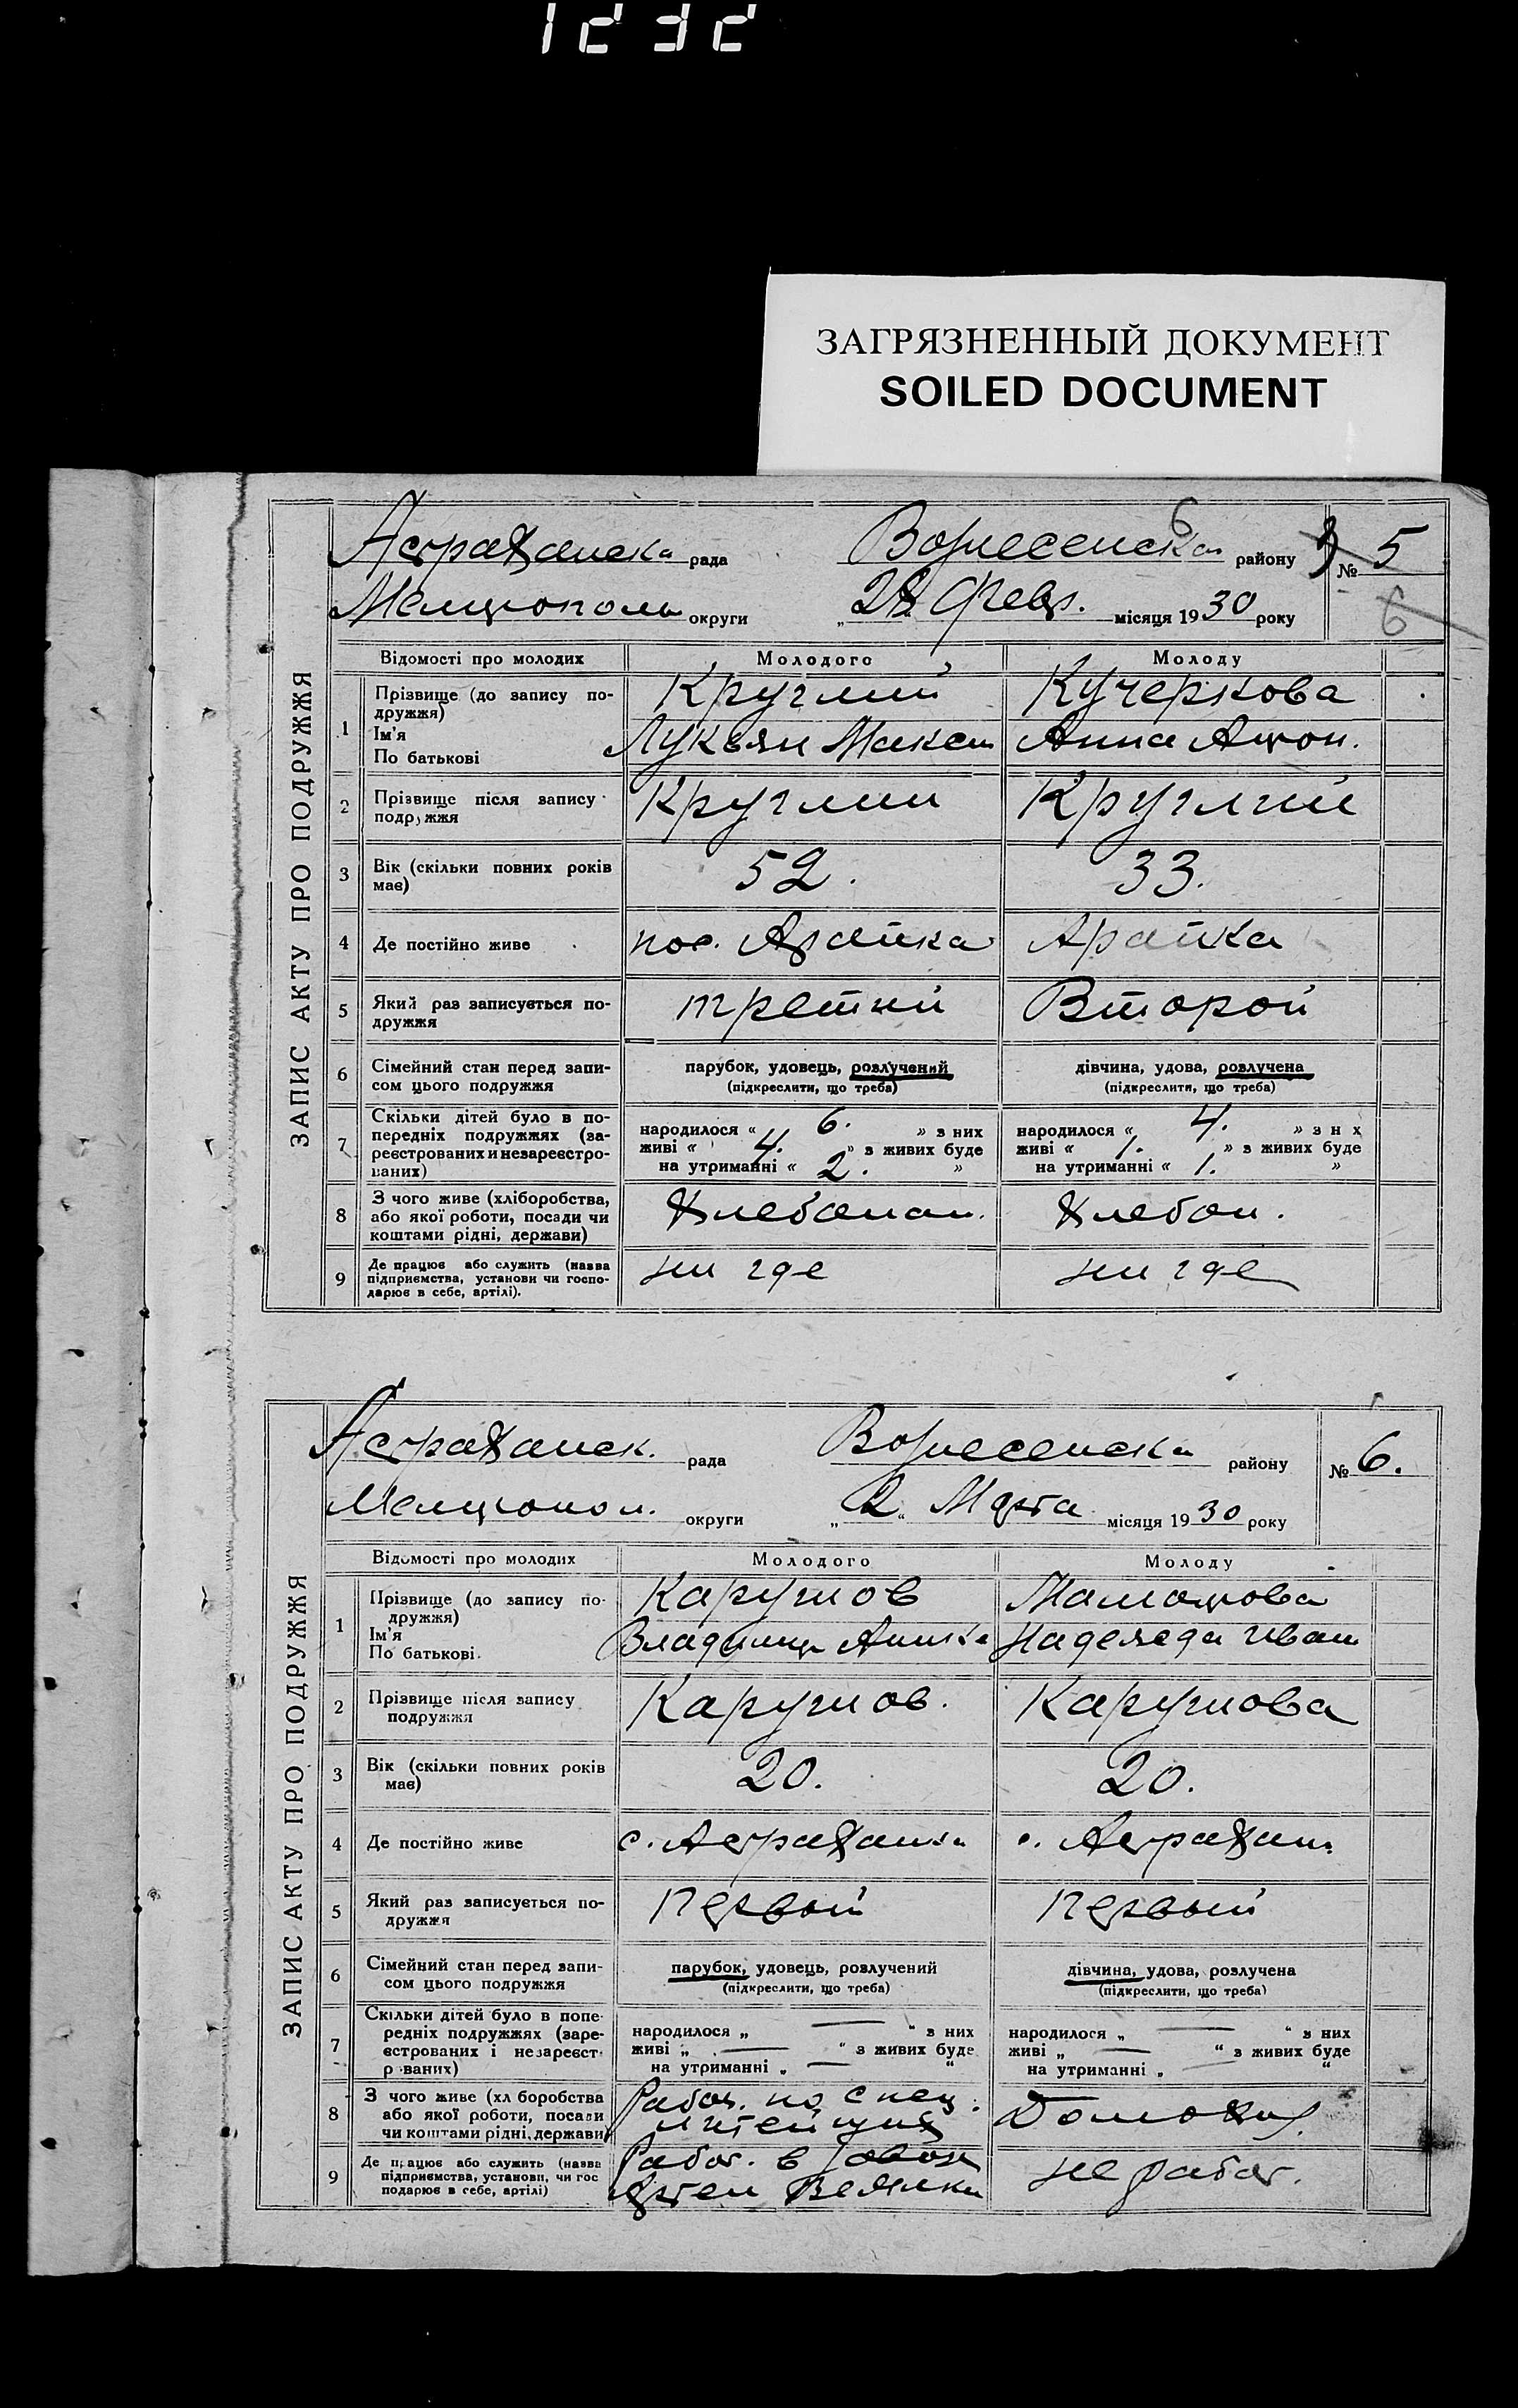 1232
ЗАГРЯЗНЕННЫЙ ДОКУМЕНТ
SOILED DOCUMENT
6
Астраханска рада Вознесенска району № 5
6
Мелитополь округи „28 Февр. місяця 1930 року
ЗАПИС АКТУ ПРО ПОДРУЖЖЯ
Відомості про молодих Молодого Молоду
1 Прізвище (до запису по- Круглий Кучеркова
дружжя)
Ім'я Лукьян Анна Антон.
По батькові
2 Прізвище після запису Круглий Круглий
подружжя
3 Вік (скільки повних років 52. 33.
має)
4 Де постійно живе пос. Арайка
5 Який раз записується по- третий Второй
дружжя
6 Сімейний стан перед запи- парубок, удовець, розлучений дівчина, удова, розлучена
сом цього подружжя (підкреслити, що треба) (підкреслити, що треба)
7 Скільки дітей було в по- народилося « 6. » з них народилося « 4. » з н х
передніх подружжях (за- живі « 4. » з живих буде живі « 1. » з живих буде
реєстрованих и незареєстро- на утриманні « 2. » на утриманні « 1. »
ваних)
8 З чого живе (хліборобства, Хлебопаш. Хлебоп.
або якої роботи, посади чи
коштами рідні, держави)
9 Де працює або служить (назва ни где ни где
підприємства, установи чи госпо-
дарює в себе, артілі).
Астраханск. рада Вознесенска району № 6.
Мелитопол. округи „2“ Марта місяця 1930 року
ЗАПИС АКТУ ПРО ПОДРУЖЖЯ
Відомості про молодих Молодого Молоду
1 Прізвище (до запису по-
дружжя)
Ім'я Владимир Надежда Иван
По батькові.
2 Прізвище після запису
подружжя
3 Вік (скільки повних років 20. 20.
має)
4 Де постійно живе с. Астраханка с. Астрахан.
5 Який раз записується по- первый первый
дружжя
6 Сімейний стан перед запи- парубок, удовець, розлучений дівчина, удова, розлучена
сом цього подружжя (підкреслити, що треба) (підкреслити, що треба)
7 Скільки дітей було в попе- народилося „ — “ з них народилося „ — “ з них
редніх подружжях (заре- живі „ — “ з живих буде живі „ — “ з живих буде
єстрованих і незареєст на утриманні „ — “ на утриманні „ — “
р ваних)
8 З чого живе (хл боробства Работ. по спец. Домохоз.
або якої роботи, посади
чи коштами рідні, держави
9 Де працює або служить (назва Работ. в не работ.
підприємства, установи, чи гос
подарює в себе, артілі)